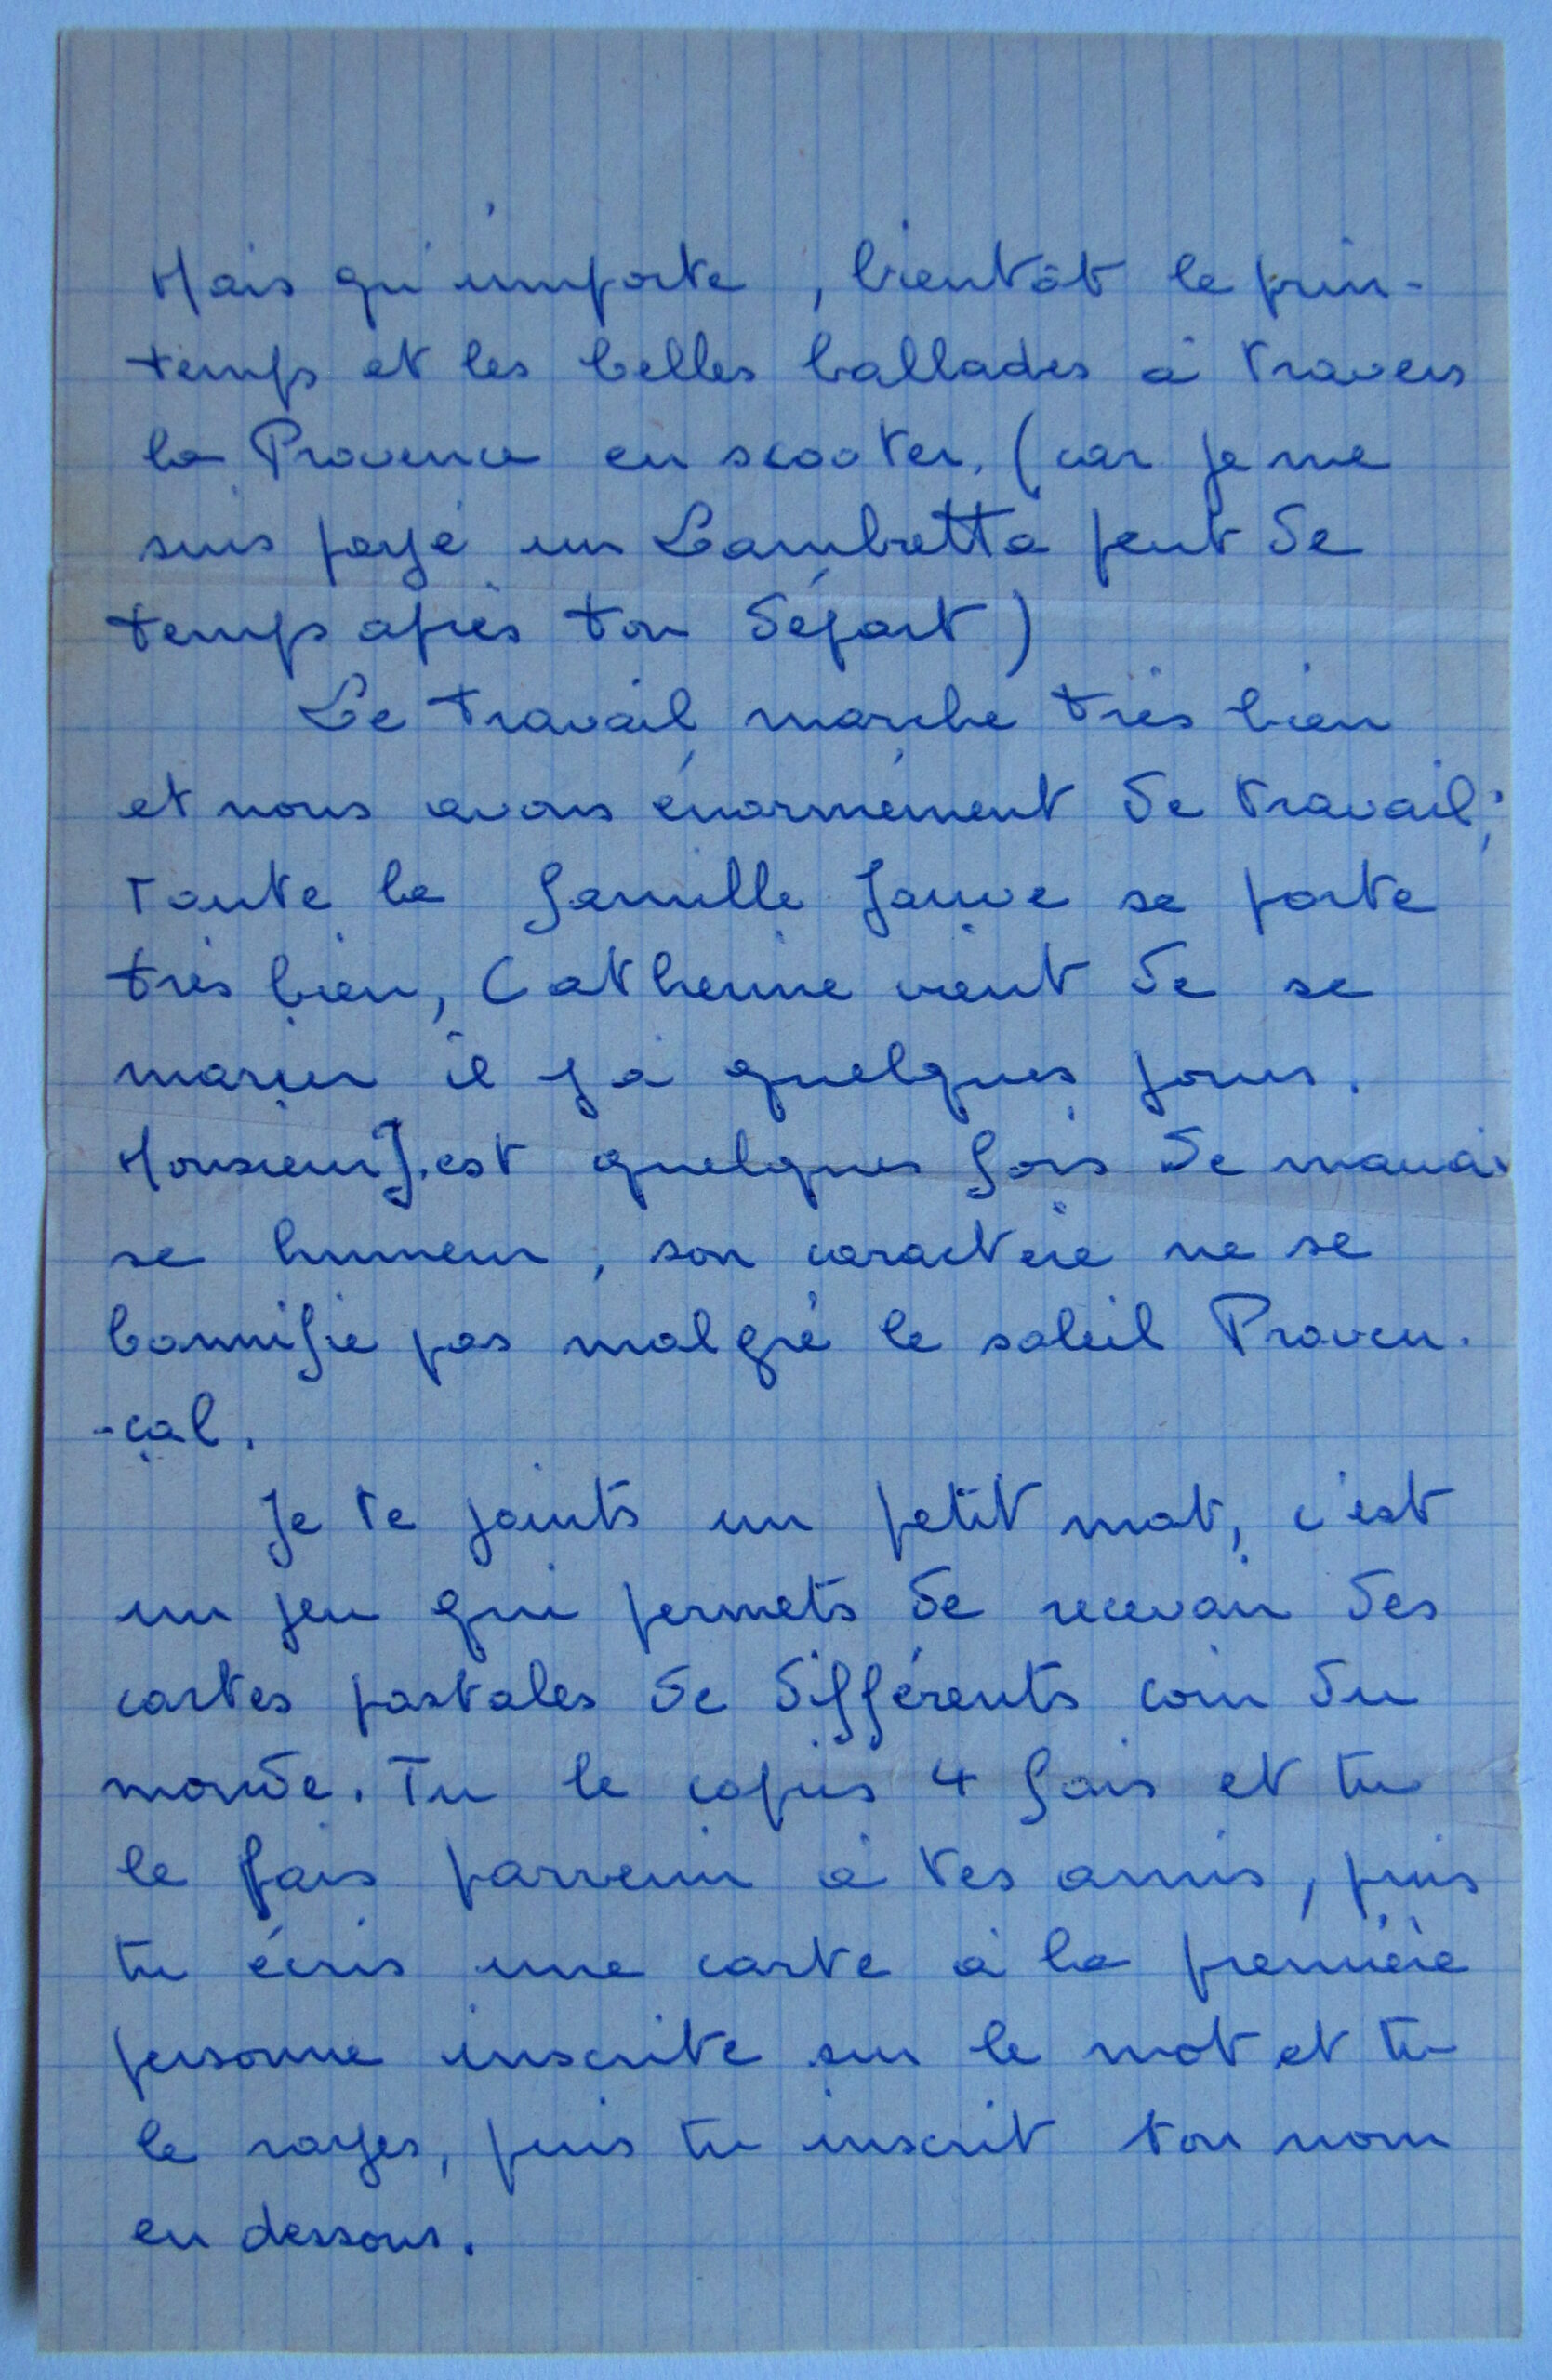 Mais qu'importe, bientôt le prin-
temps et les belles ballades à travers
la Provence en scooter. (car je me
suis payé un Lambretta peut de
temps après ton départ)
Le travail marche très bien
et nous avons énormément de travail;
Toute la famille Jauve se porte
très bien, Catherine vient de se
marier il y a quelques jours.
Monsieur J. est quelques fois de mauvai
se humeur, son caractère ne se
bonnifie pas malgré le soleil Proven-
-çal.
Je te joints un petit mot, c'est
un jeu qui permets de recevoir des
cartes postales de différents coin du
monde. Tu le copies 4 fois et tu
le fais parvenir à tes amis, puis
tu écris une carte à la première
personne inscrite sur le mot et tu
le rayes, puis tu inscrit ton nom
en dessous.